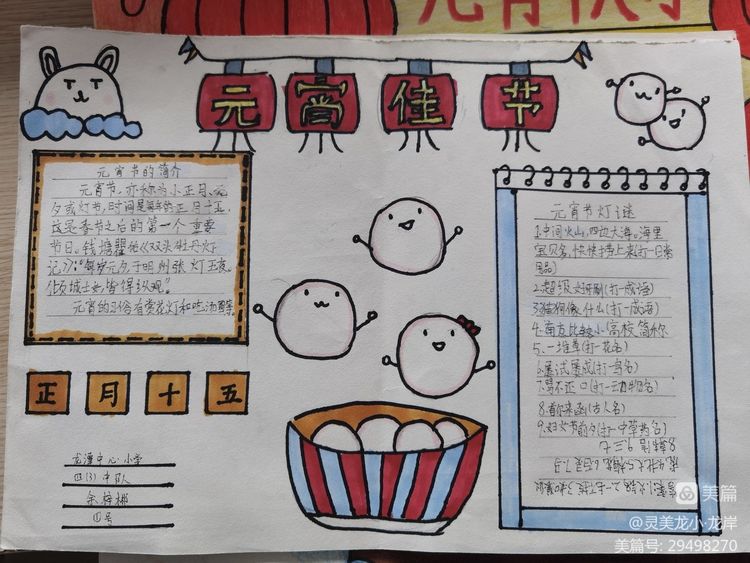 元宵快乐
元宵佳节
元宵节的简介
元宵节,亦称为小正月、元
夕或灯节,时间是每年的正月十五,
这是春节之后的第一个重要
节日。钱塘瞿佑《双头牡丹灯
记》:“每岁元夕于明州张灯五夜。
倾城士女皆得纵观”
元宵的习俗有赏花灯和吃汤圆等。
正月十五
龙潭中心小学
四(3)中队
余
四号
元宵节灯谜
1.中间火山,四边大海。海里
宝贝多,快快捞上来(打一日常
用品)
2.超级好牙刷(打一成语)
3.猫狗像什么(打一成语)
4.南方比较小(高校简称
5.一堆草(打一花名)
6.屡试屡成(打一鸟名)
7.骂不还口(打一动物名)
8.首尔来函(古人名)
9.妇女节前夕(打一中草药名)
美篇
@灵美龙小·龙岸
美篇号: 29498270